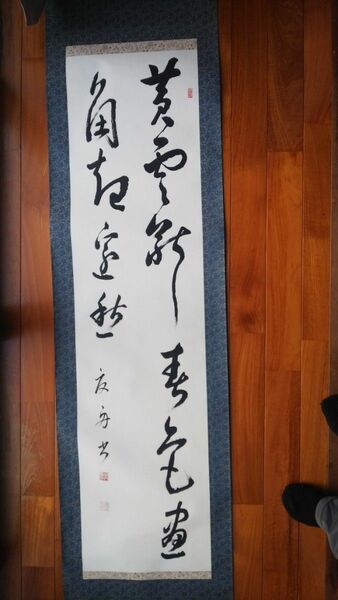 黄雲断春色畫
角起邊愁
書